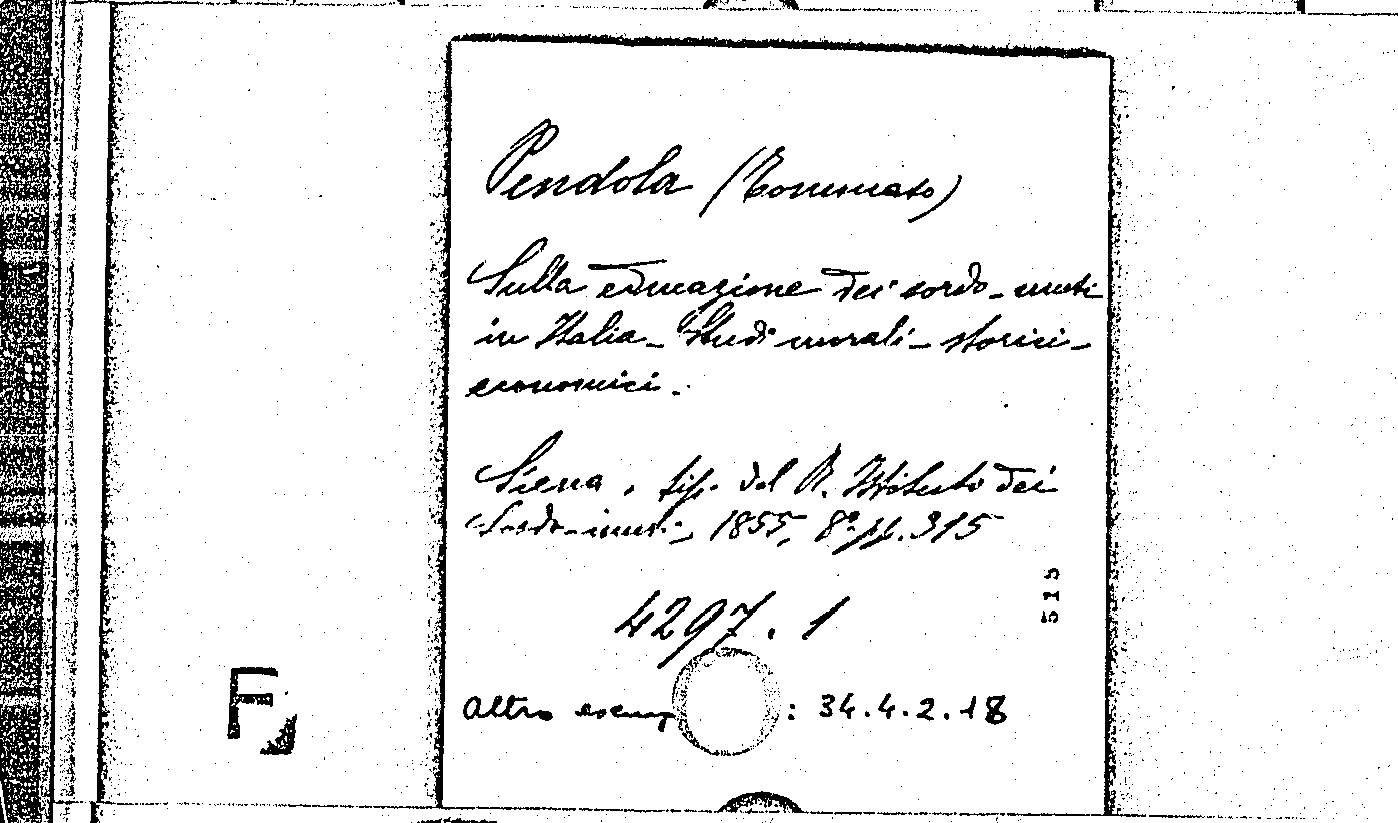 Pendola (Tommaso)
Sulla educazione dei sordo-muti
in Italia - Studi morali - storici -
economici.
Siena, tip. del R. Istituto dei
Sordo-muti, 1855, 8º pp. 315
4297.1
515
altro esemp : 34.4.2.18
F